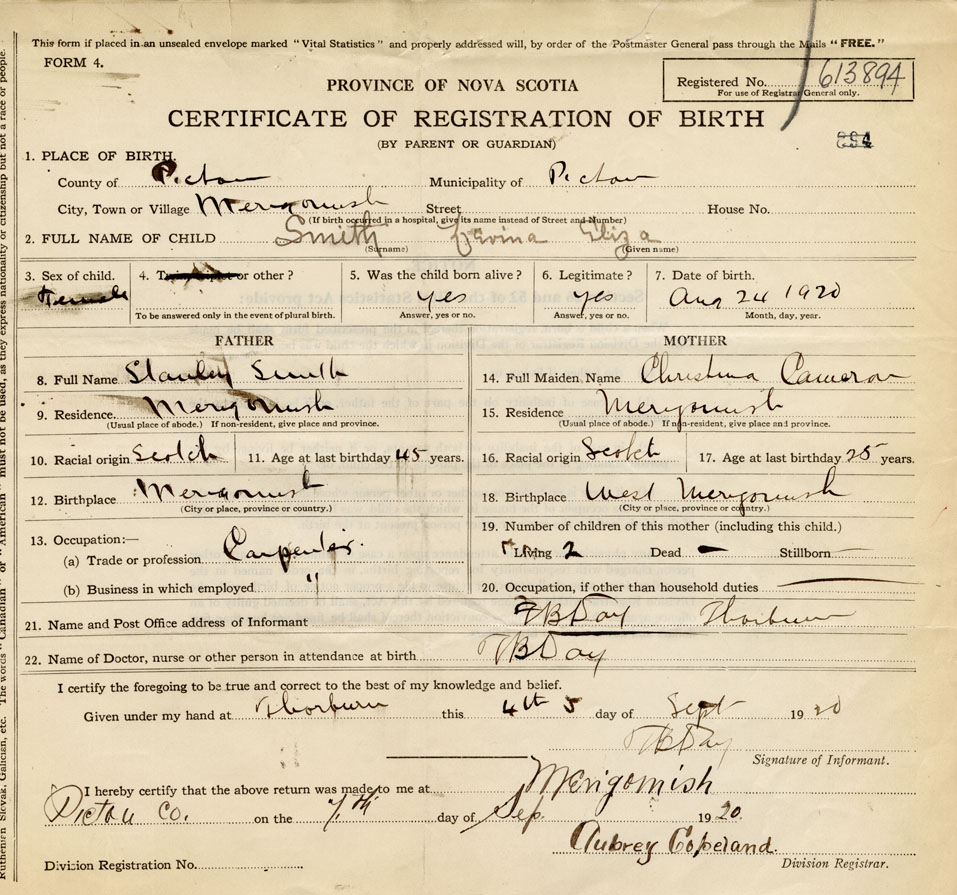 This form if placed in an unsealed envelope marked "Vital Statistics" and properly addressed will, by order of the Postmaster General pass through the Mails "FREE."
FORM 4.
Registered No. 613894
For use of Registrar General only.
PROVINCE OF NOVA SCOTIA
CERTIFICATE OF REGISTRATION OF BIRTH
(BY PARENT OR GUARDIAN)
894
1. PLACE OF BIRTH.
County of Pictou Municipality of Pictou
City, Town or Village Merigomish Street House No.
(If birth occurred in a hospital, give its name instead of Street and Number)
2. FULL NAME OF CHILD Smith Eliza
(Surname) (Given name)
3. Sex of child. 4. or other? 5. Was the child born alive? 6. Legitimate? 7. Date of birth.
Female Yes Yes Aug 24 1920
To be answered only in the event of plural birth. Answer, yes or no. Answer, yes or no. Month, day, year.
FATHER MOTHER
8. Full Name Stanley Smith 14. Full Maiden Name Christina Cameron
9. Residence Merigomish 15. Residence Merigomish
(Usual place of abode.) If non-resident, give place and province. (Usual place of abode.) If non-resident, give place and province.
10. Racial origin Scotch 11. Age at last birthday 45 years. 16. Racial origin Scotch 17. Age at last birthday 25 years.
12. Birthplace Merigomish 18. Birthplace West Merigomish
(City or place, province or country.) (City or place, province or country.)
13. Occupation:— 19. Number of children of this mother (including this child.)
(a) Trade or profession Carpenter Living 2 Dead — Stillborn —
(b) Business in which employed " 20. Occupation, if other than household duties
21. Name and Post Office address of Informant Day Thorburn
22. Name of Doctor, nurse or other person in attendance at birth Day
I certify the foregoing to be true and correct to the best of my knowledge and belief.
Given under my hand at Thorburn this 4th 5 day of Sept 1920
Day
Signature of Informant.
I hereby certify that the above return was made to me at Merigomish
Pictou Co. on the 7th day of Sep. 1920.
Aubrey Copeland.
Division Registration No. Division Registrar.
Ruthenian Slovak, Galician, etc. The words "Canadian" or "American" must not be used, as they express nationality or citizenship but not a race or people.